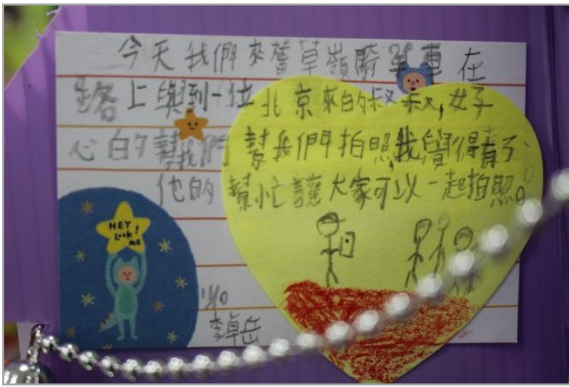 今天我們來舊草嶺騎單車在
路上與到一位北京來的叔叔,好
心的幫我們拍照,我覺得有了
他的幫忙讓大家可以一起拍照。
HEY
Look!
ME
李卓岳